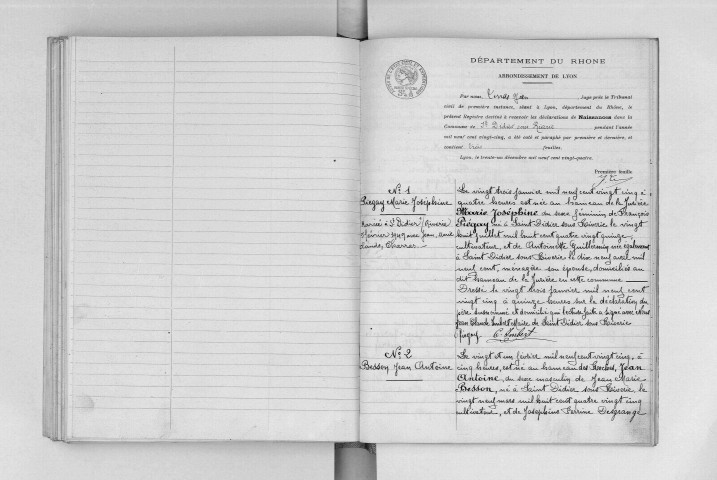 DÉPARTEMENT DU RHONE
ARRONDISSEMENT DE LYON
Par nous, Juge près le Tribunal
civil de première instance, séant à Lyon, département du Rhône, le
présent Registre destiné à recevoir les déclarations de Naissances dans la
Commune de St Didier sous Riverie pendant l'année
mil neuf cent vingt-cinq, a été coté et paraphé par première et dernière, et
contient trois feuilles.
Lyon, le trente-un décembre mil neuf cent vingt-quatre.
Première feuille
N° 1
Piégay Marie Joséphine
Mariée à St Didier s/ Riverie
février avec Jean
Charras
Le vingt trois janvier mil neuf cent vingt cinq à
quatre heures est née au hameau de la
Marie Joséphine du sexe féminin de François
Piégay né à Saint Didier sous Riverie le vingt
huit juillet mil huit cent quatre vingt quinze
cultivateur, et de Antoinette Guillermin née également
à Saint Didier sous Riverie le dix neuf avril mil
neuf cent, ménagère son épouse, domiciliés au
dit hameau de la en cette commune
Dressé le vingt trois janvier mil neuf cent
vingt cinq à quinze heures sur la déclaration du
père susnommé et domicilié qui lecture faite a signé avec Nous
Jean Claude Imbert Maire de Saint Didier sous Riverie
Piégay C. Imbert
N° 2
Besson Jean Antoine
Le vingt et un février mil neuf cent vingt cinq, à
cinq heures, est né au hameau des Jean
Antoine, du sexe masculin de Jean Marie
Besson, né à Saint Didier sous Riverie, le
vingt neuf mars mil huit cent quatre vingt cinq
cultivateur, et de Joséphine Perrine Desgrange